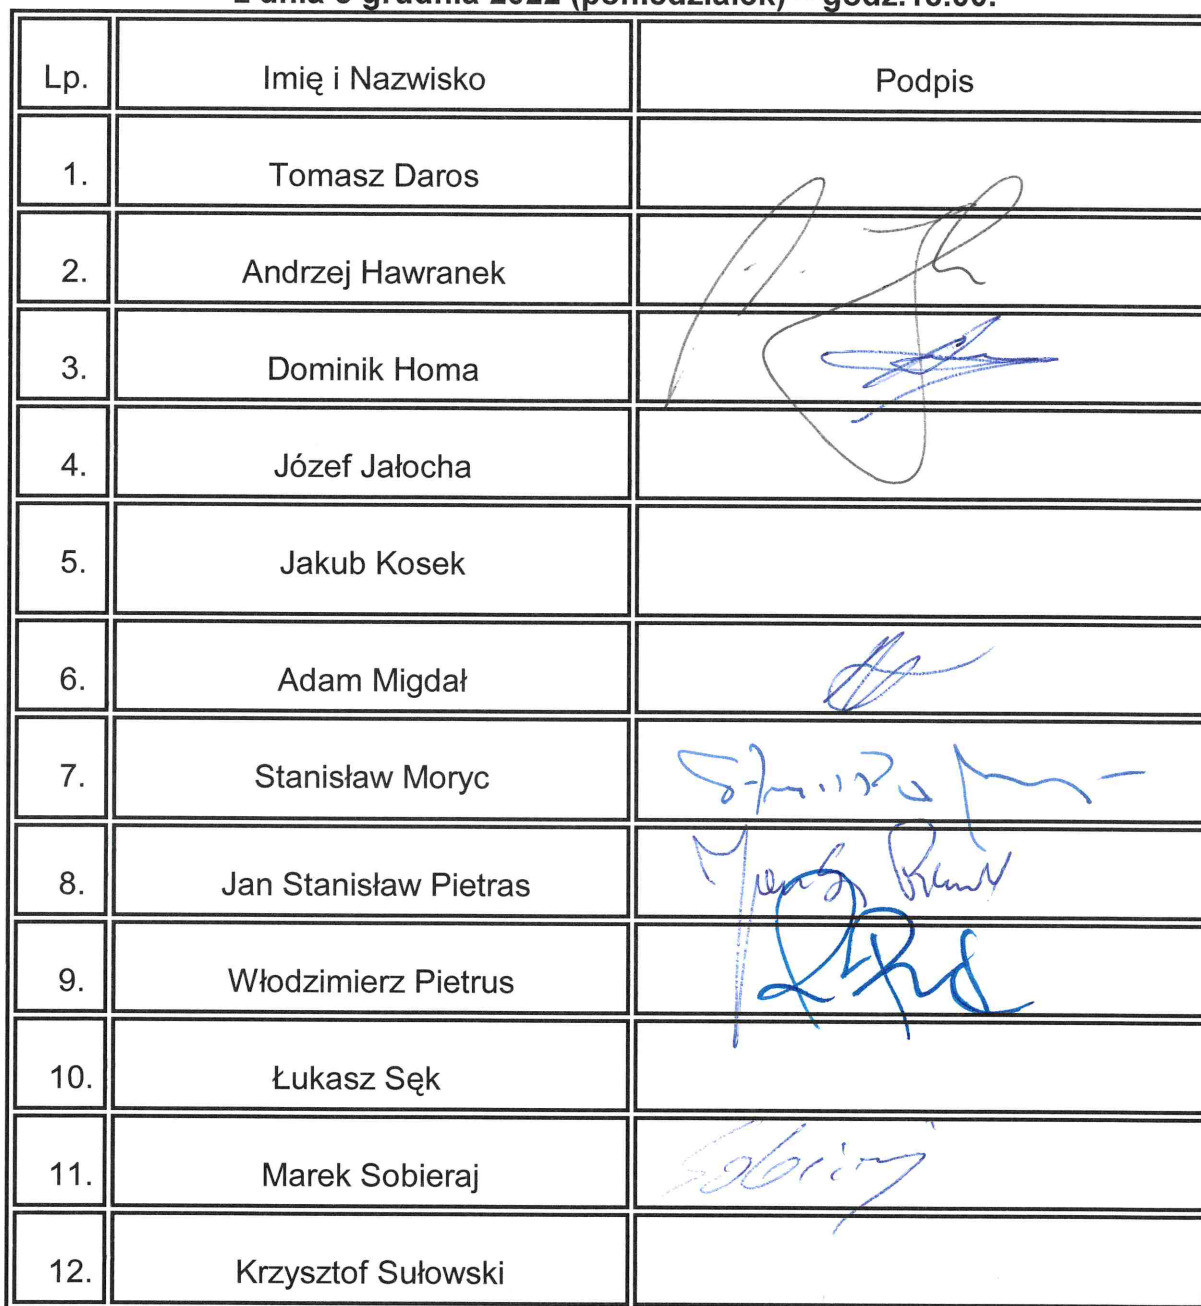 z dnia 5 grudnia 2022 (poniedziałek) – godz.
Lp. Imię i Nazwisko Podpis
1. Tomasz Daros
2. Andrzej Hawranek
3. Dominik Homa
4. Józef Jałocha
5. Jakub Kosek
6. Adam Migdał
7. Stanisław Moryc
8. Jan Stanisław Pietras
9. Włodzimierz Pietrus
10. Łukasz Sęk
11. Marek Sobieraj Sobieraj
12. Krzysztof Sułowski